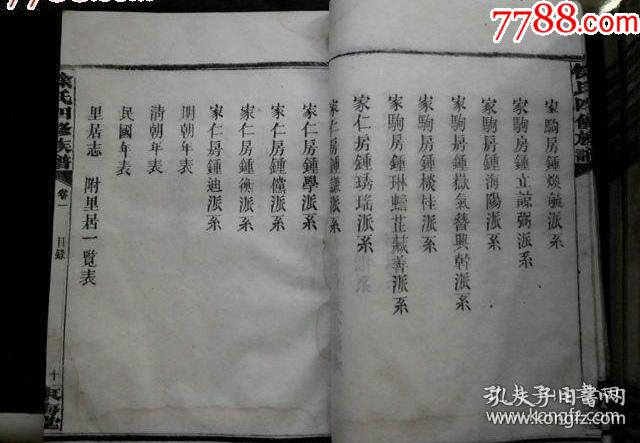 7788.com
7788.com
徐氏四修族譜
家駒房鍾煥毓派系
家駒房鍾立諒弼派系
家駒房鍾海陽派系
家駒房鍾嶽氣替興幹派系
家駒房鍾棪桂派系
家駒房鍾琳蠕茁藏善派系
家仁房鍾琇瑤派系
家仁房鍾謙派系
家仁房鍾學派系
家仁房鍾儻派系
家仁房鍾衡派系
家仁房鍾迪派系
明朝年表
清朝年表
民國年表
里居志 附里居一覽表
徐氏四修族譜 卷一 目錄 十
孔夫子旧书网